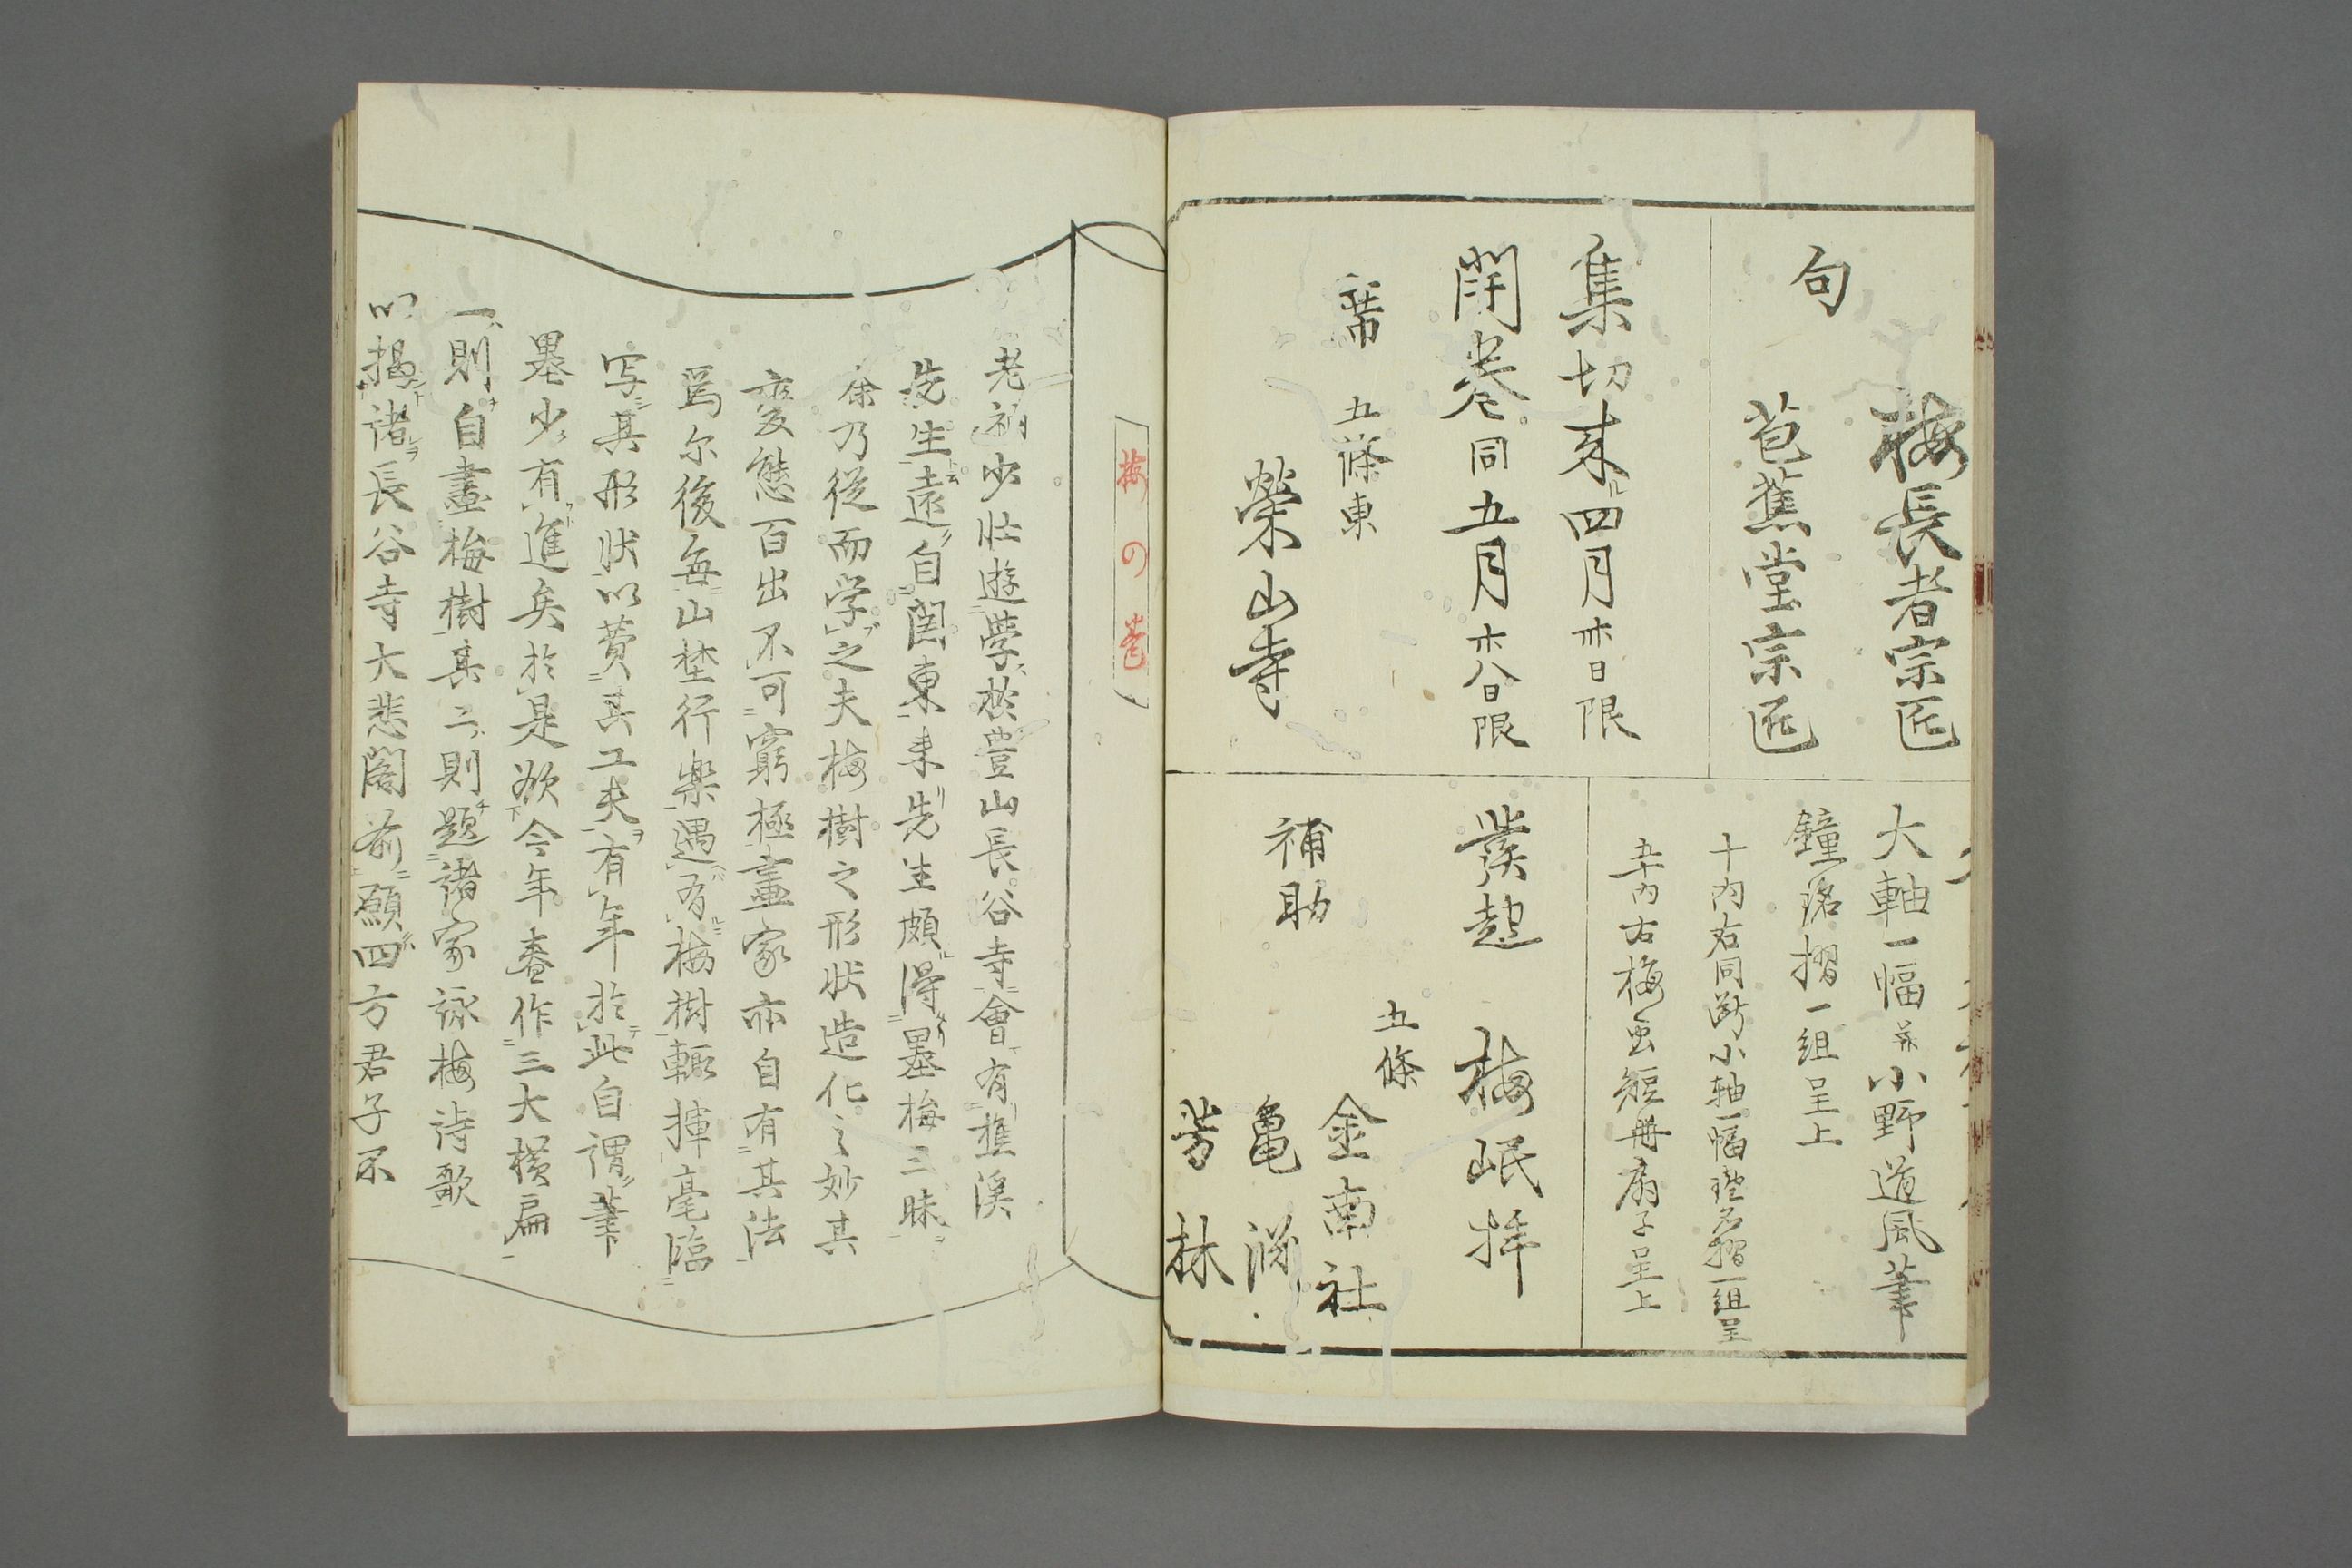 句
梅長者宗匠
芭蕉堂宗匠
集切来四月卅日限
開巻同五月廿八日限
席 五條東
榮山寺
大軸一幅并小野道風筆
鐘銘摺一組呈上
十内右同断小軸一幅鐘名摺一組呈
五十内古梅園短冊扇子呈上
發起 梅岷拝
補助
五條
金南社
亀洲
芳林
梅の巻
老衲少壮遊學於豊山長谷寺會有樵溪
先生遠自関東来先生頗得墨梅三昧
余乃從而学之夫梅樹之形状造化之妙其
変態百出不可窮極畫家亦自有其法
爲尓後毎山埜行樂遇有梅樹輙揮毫臨
写其形状以費其工夫有年於此自謂筆
墨少有進矣於是欲今年春作三大横扁
一則自畫梅樹其二則題諸家詠梅詩歌
以掲諸長谷寺大悲閣前願四方君子不